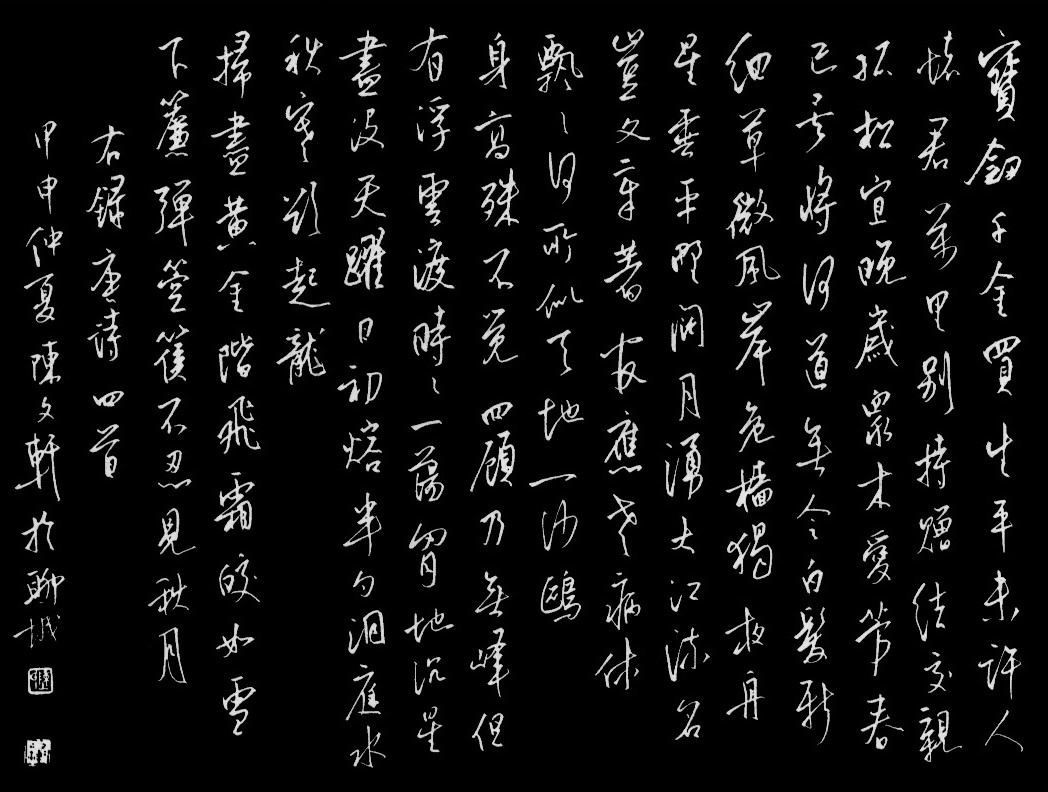 寶劍千金買生平未許人
懷君萬里別持贈結交親
孤松宜晚歲衆木愛芳春
已矣將何道無令白髮新
細草微風岸危檣獨夜舟
星垂平野闊月湧大江流名
豈文章著官應老病休
飄〻何所似天地一沙鷗
身高殊不覺四顧乃無峰但
有浮雲渡時〻一蕩胷地沉星
盡没天躍日初熔半勺洞庭水
秋寒欲起龍
掃盡黃金階飛霜皎如雪
下簾彈箜篌不忍見秋月
右錄唐詩四首
甲申仲夏陳文軒於聊城